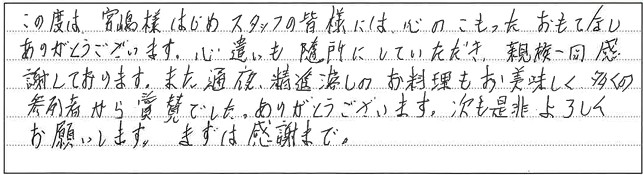 この度は、宮嶋様はじめスタッフの皆様には、心のこもったおもてなし
ありがとうございます。心遣いも随所にしていただき親族一同感
謝しております。また通夜、精進落しのお料理もお美味しく、多くの
参列者から賞賛でした。ありがとうございます。次も是非よろしく
お願いします。まずは感謝まで。